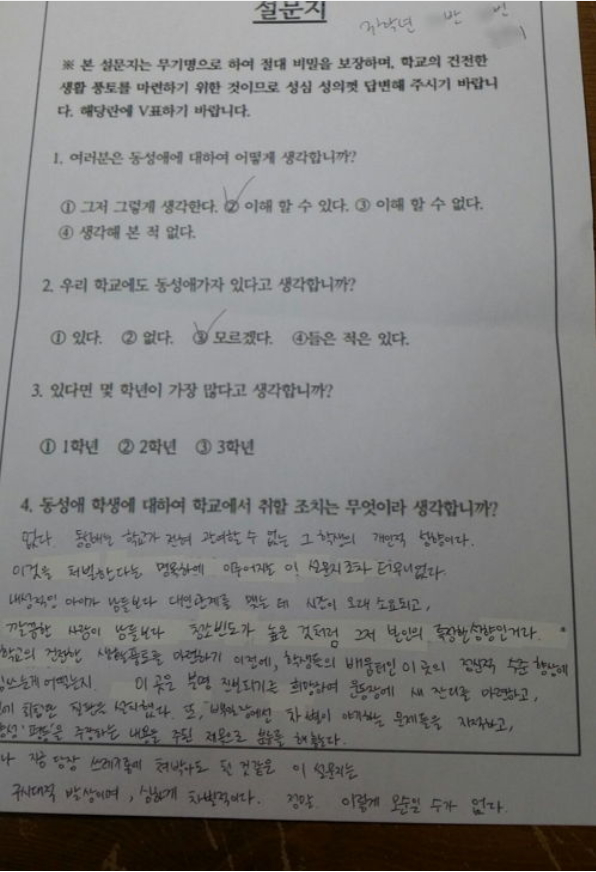 설문지
학년 반 번
※ 본 설문지는 무기명으로 하여 절대 비밀을 보장하며, 학교의 건전한
생활 풍토를 마련하기 위한 것이므로 성심 성의껏 답변해 주시기 바랍니
다. 해당란에 V표하기 바랍니다.
1. 여러분은 동성애에 대하여 어떻게 생각합니까?
① 그저 그렇게 생각한다. ② 이해 할 수 있다. ③ 이해 할 수 없다.
④ 생각해 본 적 없다.
2. 우리 학교에도 동성애가자 있다고 생각합니까?
① 있다. ② 없다. ③ 모르겠다. ④들은 적은 있다.
3. 있다면 몇 학년이 가장 많다고 생각합니까?
① 1학년 ② 2학년 ③ 3학년
4. 동성애 학생에 대하여 학교에서 취할 조치는 무엇이라 생각합니까?
없다. 동성애는 학교가 전혀 관여할 수 없는 그 학생의 개인적 성향이다.
이것을 처벌한다는 명목하에 이루어지는 이 설문지조차 터무니없다.
내성적인 아이가 남들보다 대인관계를 맺는 데 시간이 오래 소요되고,
깔끔한 사람이 남들보다 청소빈도가 높은 것처럼 그저 본인의 특징한 성향인거라.
학교의 건전한 생활풍토를 마련하기 이전에, 학생들의 배움터인 이 곳의 정신적 수준 향상에
힘쓰는게 어떻는지. 이 곳은 분명 진보되기를 희망하여 운동장에 새 잔디를 마련하고,
설치했다. 또, 백일장에선 차별이 야기하는 문제들을 지적하고,
'평등'을 주장하는 내용을 주된 제목으로
지금 당장 쓰레기통에 쳐박아도 될 것같은 이 설문지는
구시대적 발상이며, 심하게 차별적이다. 정말 이렇게 모순일 수가 없다.